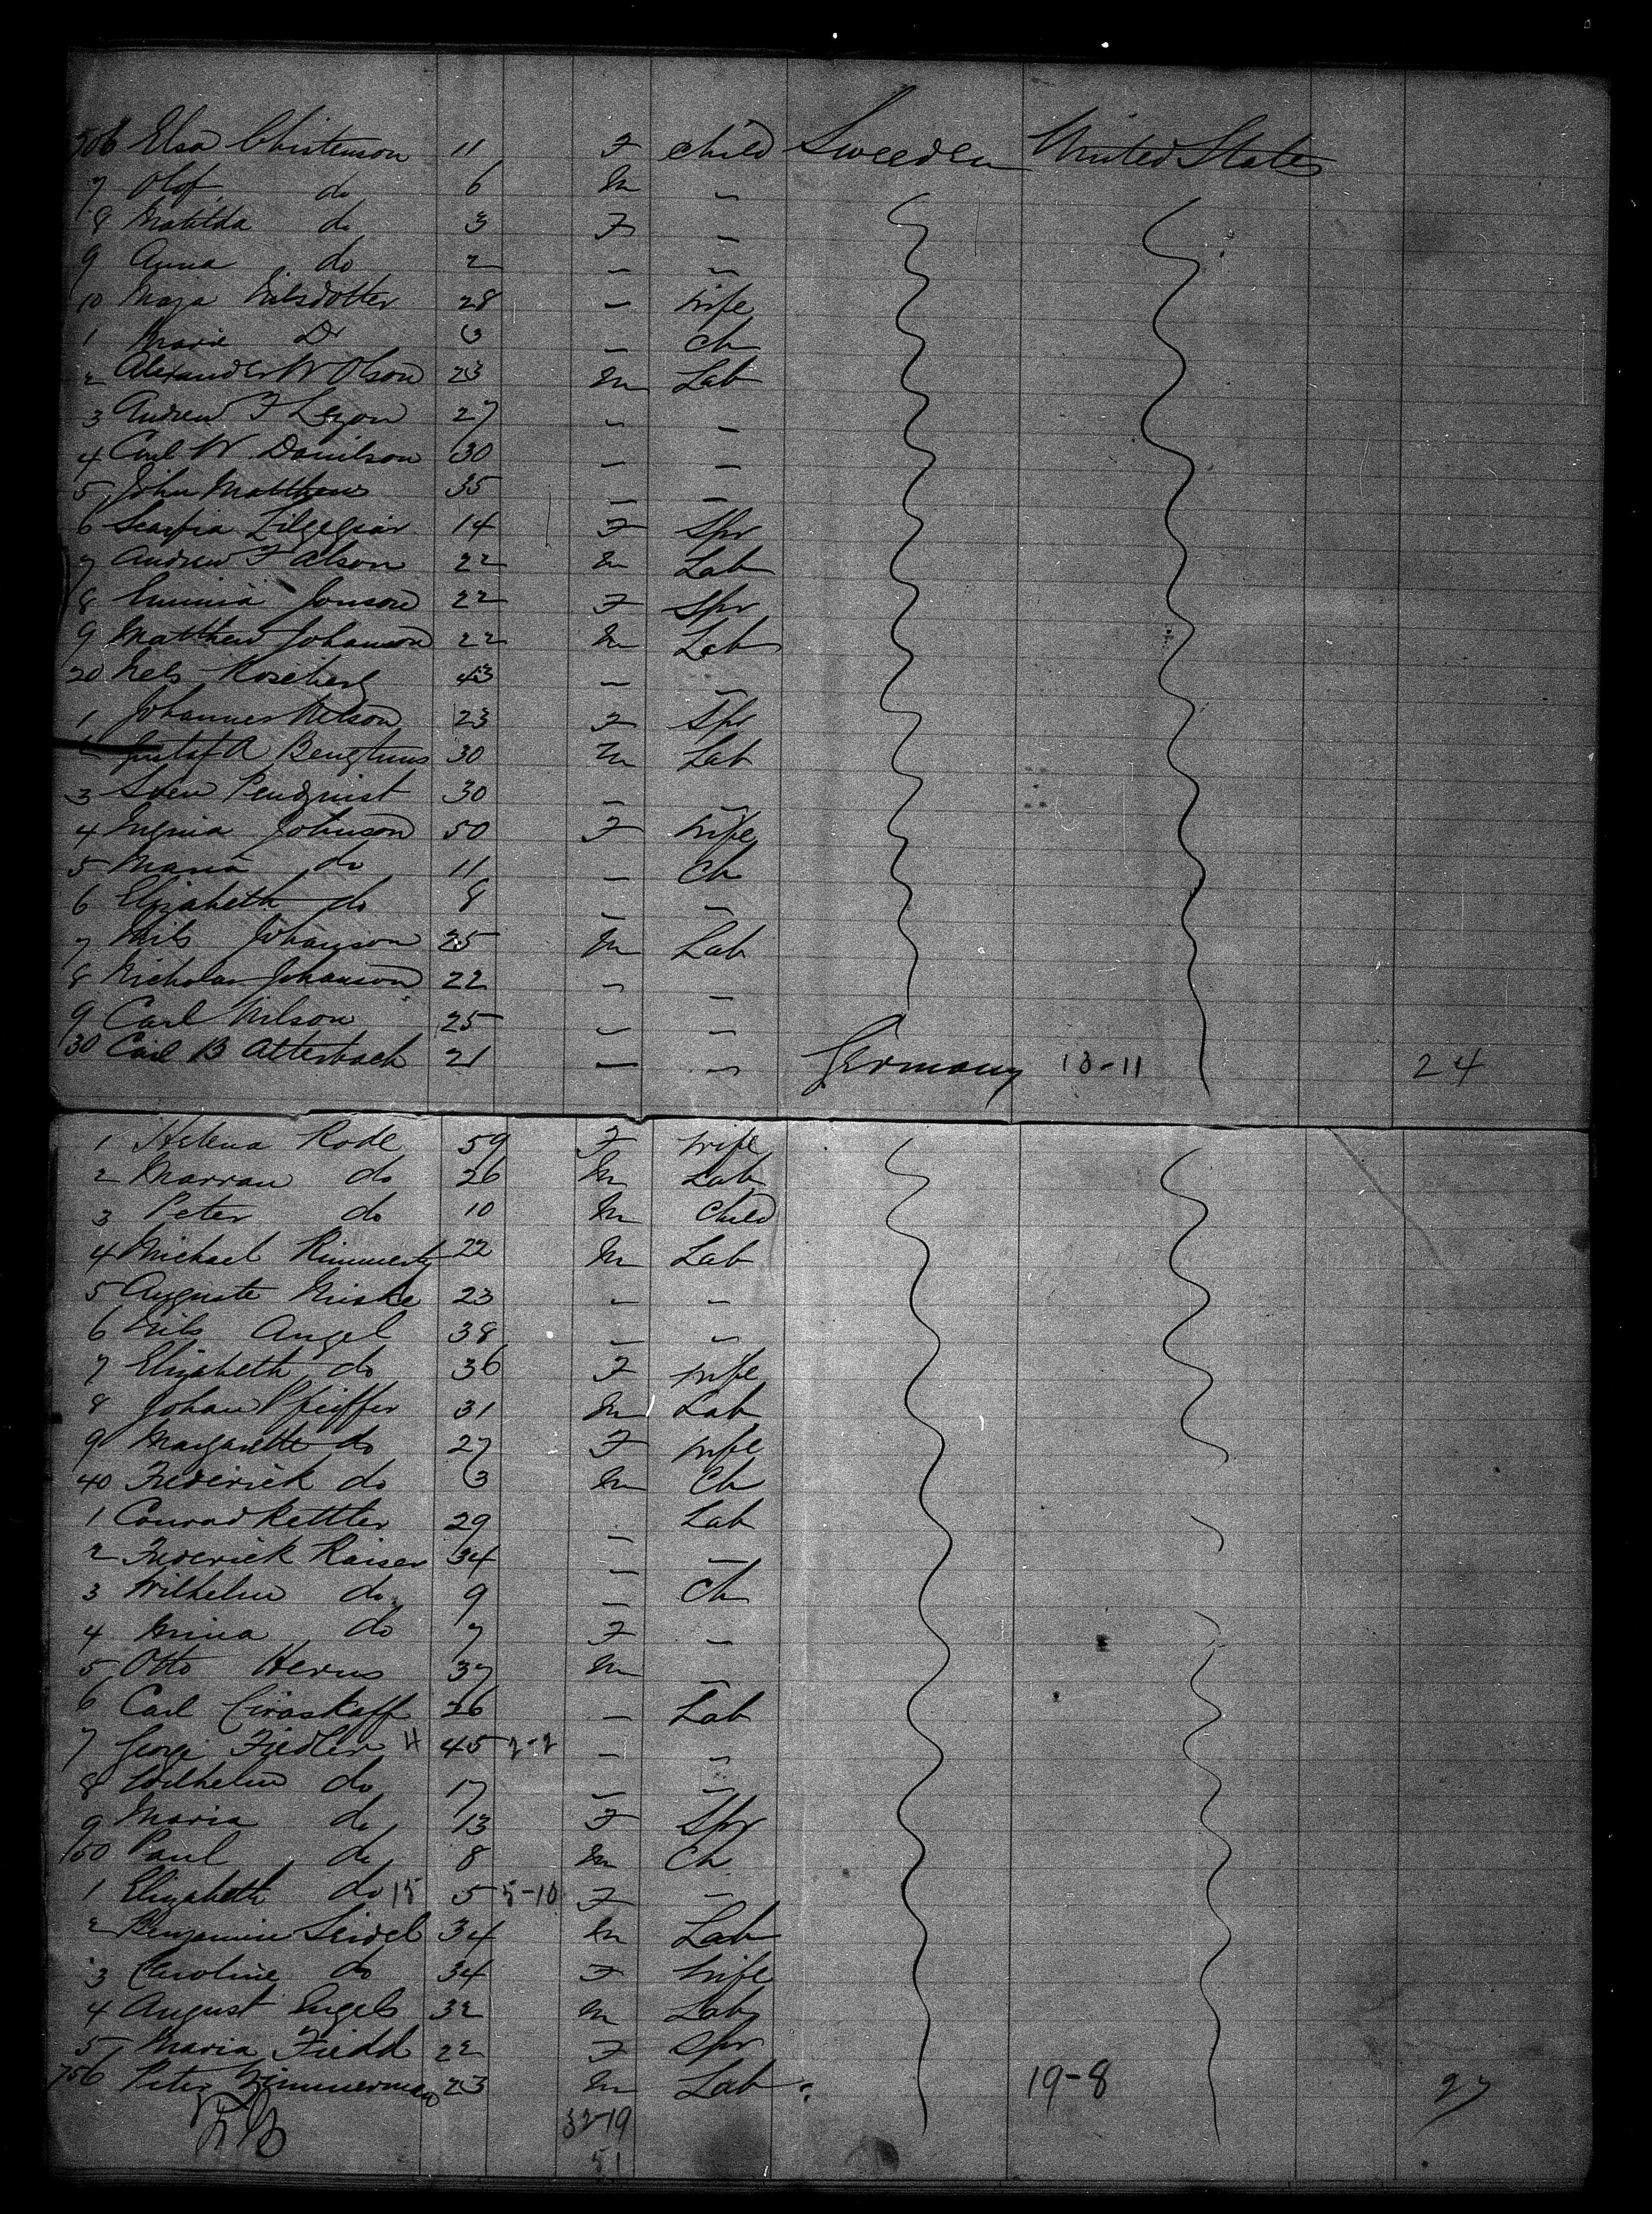 706 Elsa Christenson 11 F child Sweeden United States
7 Olof do 6 M –
8 Matilda do 3 F –
9 Anna do 2 – –
10 Maja Nilsdotter 28 – wife
1 Marie Do 3 – ch
2 Alexander W Olson 23 M Lab
3 Andrew F Legon 27 – –
4 Carl W. Danilson 30 – –
5 John Matthews 35 – –
6 14 F Spr
7 Andrew F Alson 22 M Lab
8 Emma Jonson 22 F Spr
9 Matthew Johanson 22 M Lab
20 Nels Roseberg 43 – –
1 Johannes Nelson 23 F Spr
2 Gustaf A 30 M Lab
3 Sven 30 – –
4 Johnson 50 F wife
5 Maria do 11 – Ch
6 Elizabeth do 8 – –
7 Nils Johanson 25 M Lab
8 Nicholas Johanson 22 – –
9 Carl Nilson 25 – –
30 Carl B Atterbach 21 – – Germany 13-11 24
1 Helena Rode 59 F wife
2 do 26 M Lab
3 Peter do 10 M Child
4 Michael 22 M Lab
5 Auguste 23 – –
6 Nils Angel 38 – –
7 Elizabeth do 36 F wife
8 Johan Pfeiffer 31 M Lab
9 Margarette do 27 F wife
40 Frederick do 3 M Ch
1 Conrad Kettler 29 – Lab
2 Frederick Kaiser 34 – –
3 Wilhelm do 9 – Ch
4 Mina do 7 F –
5 Otto 37 M –
6 Carl 26 – Lab
7 George Fiedler H 45 2-2 – –
8 Wilhelm do 17 – –
9 Maria do 13 F Spr
150 Paul do 8 M Ch
1 Elizabeth do 15 5 5-10 F –
2 Benjamin Seidel 34 M Lab
3 Caroline do 34 F wife
4 August Engels 32 M Lab
5 Maria 22 F Spr
756 Peter Zimmerman 23 M Lab 19-8 27
32-19
51